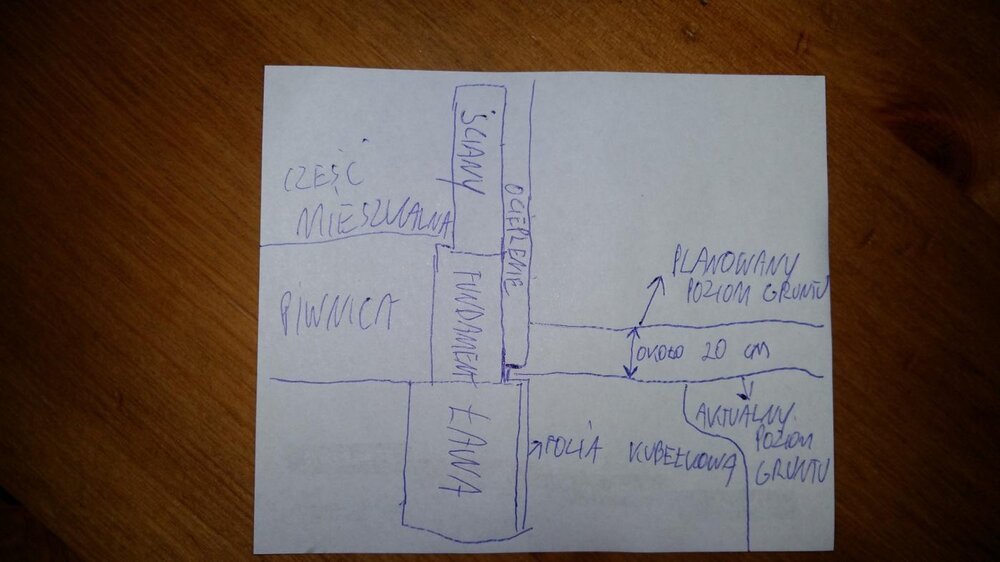 ŚCIANY
CZĘŚĆ
MIESZKALNA
OCIEPLENIE
PLANOWANY
POZIOM GRUNTU
PIWNICA
FUNDAMENT
OKOŁO 20 CM
ŁAWA
FOLIA KUBEŁKOWA
AKTUALNY
POZIOM
GRUNTU